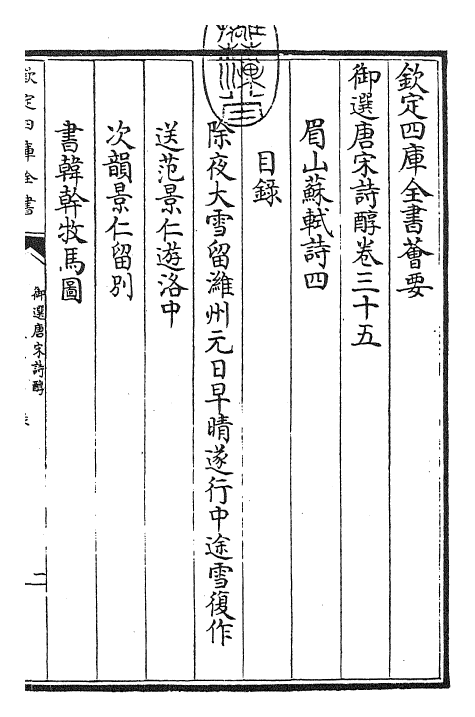 欽定四庫全書薈要
御選唐宋詩醇卷三十五
眉山蘇軾詩四
目錄
除夜大雪留濰州元日早晴遂行中途雪復作
送范景仁遊洛中
次韻景仁留別
書韓幹牧馬圖
欽定四庫全書
御選唐宋詩醇